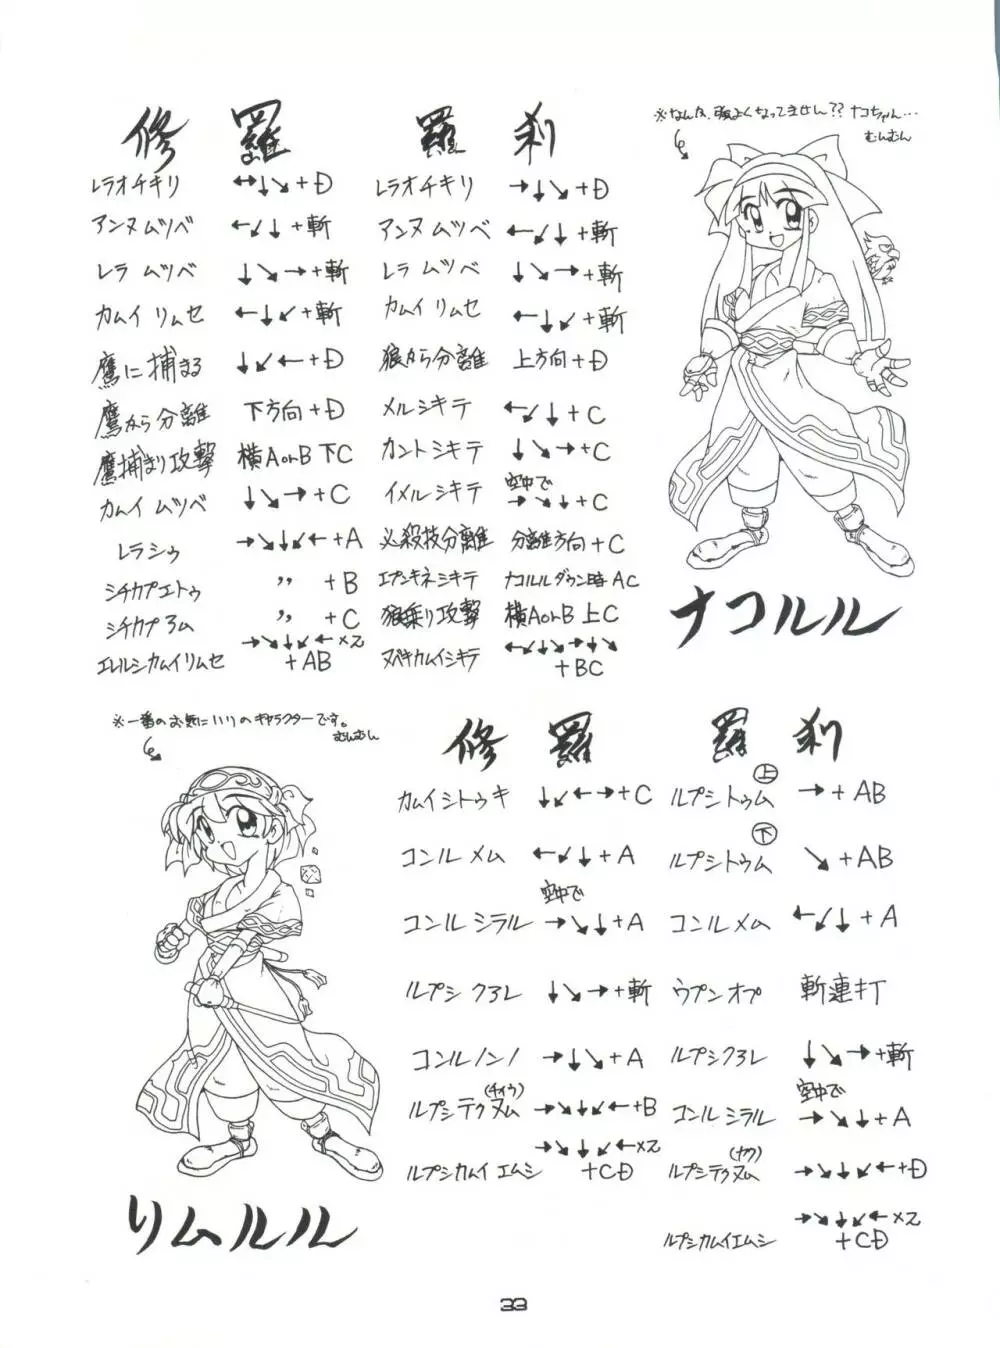 ※なんか、頭よくなってません?? ナコちゃん…
むんむん
修羅 羅刹
レラオチキリ ↔↓↘+D レラオチキリ →↓↘+D
アンヌ ムツベ ←↙↓+斬 アンヌ ムツベ ←↙↓+斬
レラ ムツベ ↓↘→+斬 レラ ムツベ ↓↘→+斬
カムイ リムセ ←↓↙+斬 カムイ リムセ ←↓↙+斬
鷹に捕まる ↓↙←+D 狼から分離 上方向+D
鷹から分離 下方向+D メルシキテ ←↙↓+C
鷹捕まり攻撃 横AorB 下C カントシキテ ↓↘→+C
カムイ ムツベ ↓↘→+C イメルシキテ 空中で →↘↓+C
レラシゥ →↘↓↙←+A 必殺技分離 分離方向+C
シチカプエトゥ 〃 +B エプンキネシキテ ナコルルダウン時 AC
シチカプ ヨム 〃 +C 狼乗り攻撃 横AorB 上C
エレルシカムイリムセ →↘↓↙←×2 +AB ヌペキカムイシキテ ←↙↓↘→↓↘ +BC
ナコルル
※一番のお気にいりのキャラクターです。
むんむん
修羅 羅刹
カムイシトゥキ ↓↙←→+C ルプシトゥム 上 →+AB
コンル メム ←↙↓+A ルプシトゥム 下 ↘+AB
コンル シラル 空中で →↘↓+A コンル メム ←↙↓+A
ルプシ クヨレ ↓↘→+斬 ウプン オプ 斬連打
コンルノンノ →↓↘+A ルプシクヨレ ↓↘→+斬
ルプシ テク ヌム (チイウ) →↘↓↙←+B コンル シラル 空中で →↘↓+A
ルプシカムイ エムシ →↘↓↙←×2 +CD ルプシテクヌム (ナウ) →↘↓↙←+D
ルプシカムイエムシ →↘↓↙←×2 +CD
リムルル
33